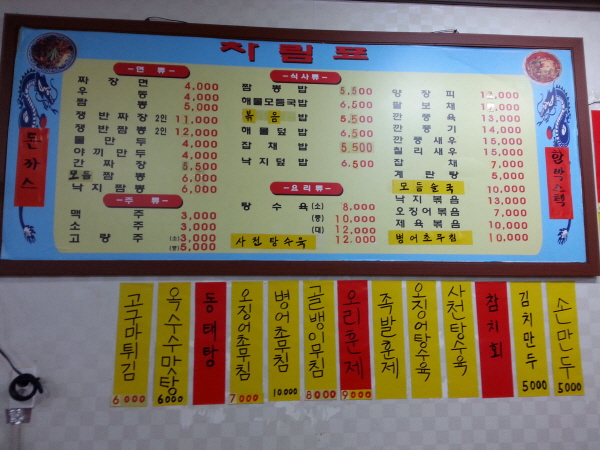 차림표
돈까스
함박스텍
면류
짜장면 4,000
우동 4,000
짬뽕 5,000
쟁반짜장 2인 11,000
쟁반짬뽕 2인 12,000
물만두 4,000
야끼만두 4,000
간짜장 5,500
모듬짬뽕 6,000
낙지짬뽕 6,000
주류
맥주 3,000
소주 3,000
고량주 (소) 3,000
(중) 5,000
식사류
짬뽕밥 5,500
해물모듬국밥 6,500
볶음밥 5,500
해물덮밥 6,500
잡채밥 5,500
낙지덮밥 6,500
요리류
탕수육 (소) 8,000
(중) 10,000
(대) 12,000
사천탕수육 12,000
양장피
팔보채
깐풍육 13,000
깐풍기 14,000
깐풍새우 15,000
칠리새우 15,000
잡채 7,000
계란탕 5,000
모듬술국 10,000
낙지볶음 13,000
오징어볶음 10,000
제육볶음 10,000
병어초무침 10,000
고구마튀김 6000
옥수수맛탕 6000
동태탕
오징어초무침 7000
병어초무침 10,000
골뱅이무침 8000
오리훈제 9000
족발훈제
오징어탕수육
사천탕수육
참치회
김치만두 5000
손만두 5000